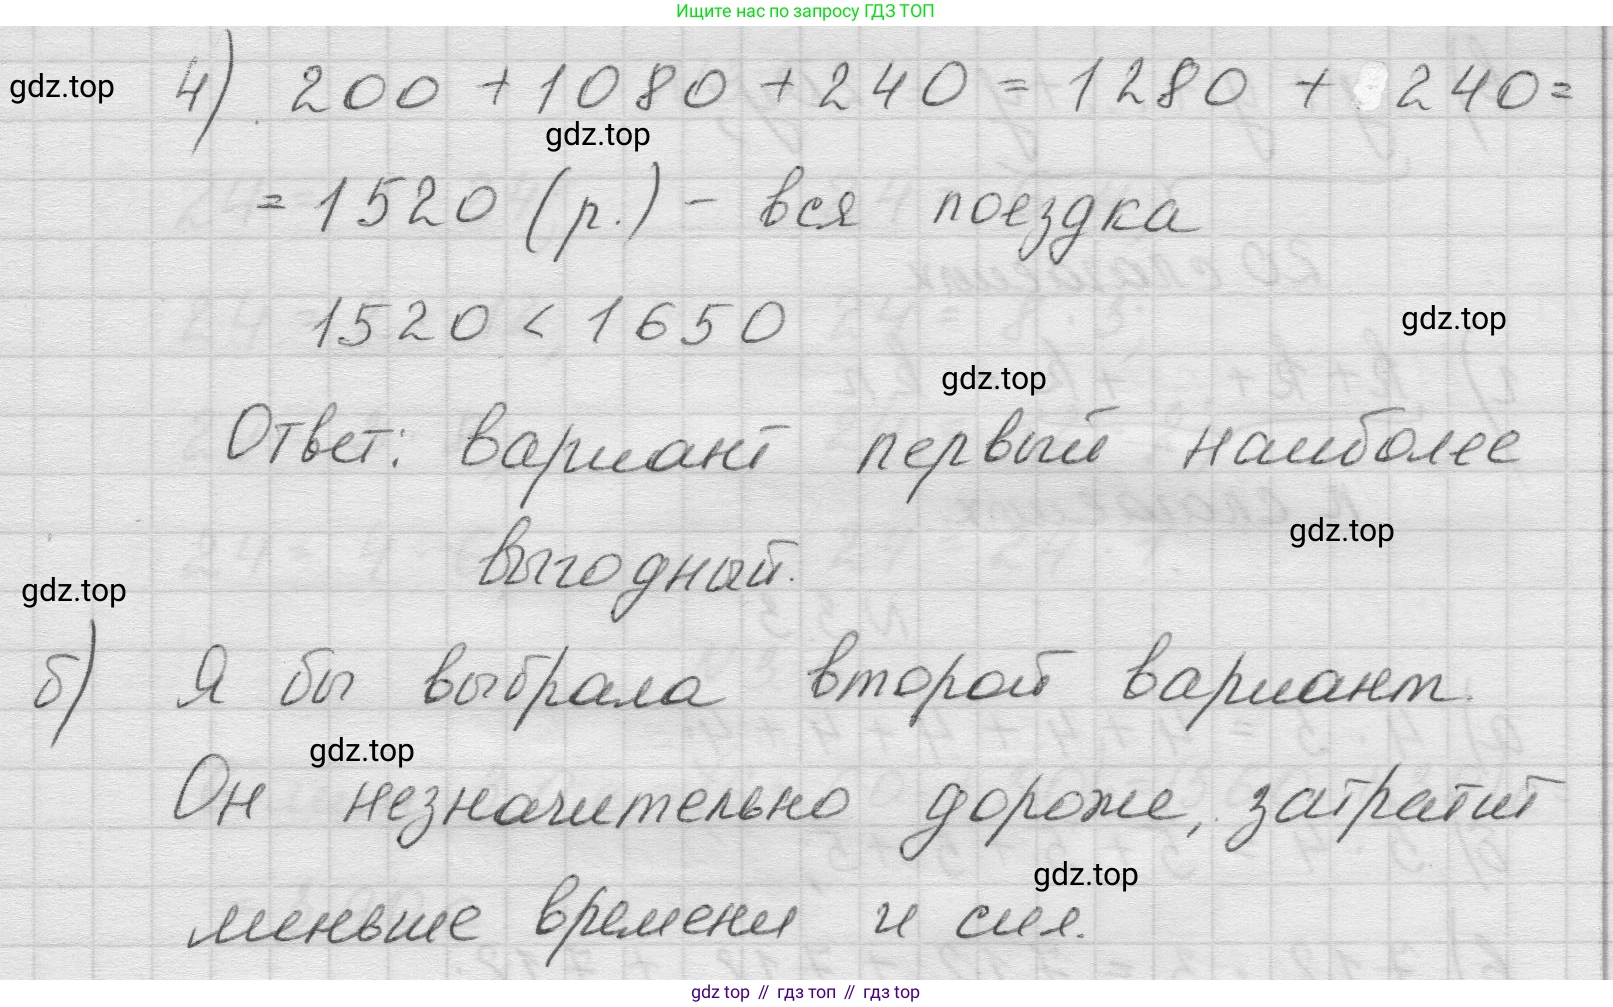 Ищите нас по запросу ГДЗ ТОП
4) 200 + 1080 + 240 = 1280 + 240 =
gdz.top
gdz.top
= 1520 (р.) - вся поездка
1520 < 1650
gdz.top
gdz.top
Ответ: вариант первый наиболее
выгодный.
gdz.top
gdz.top
б) Я бы выбрала второй вариант.
gdz.top
Он незначительно дороже, затратит
gdz.top
меньше времени и сил.
gdz top // гдз топ // гдз top